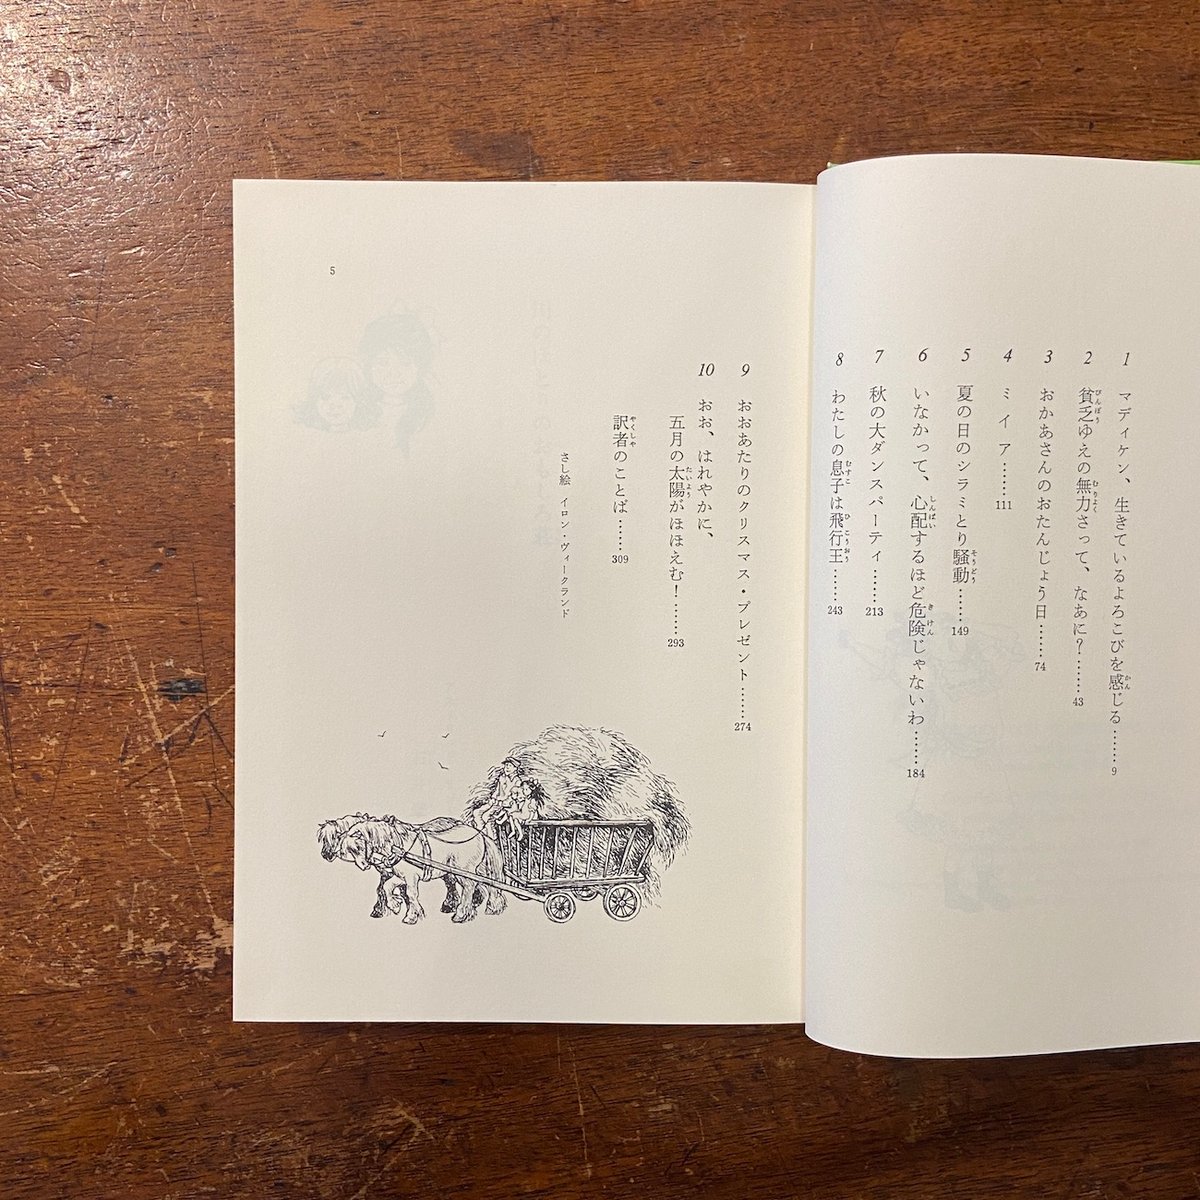 1 マディケン、生きているよろこびを感じる……9
2 貧乏ゆえの無力さって、なあに?……43
3 おかあさんのおたんじょう日……74
4 ミイア……111
5 夏の日のシラミとり騒動……149
6 いなかって、心配するほど危険じゃないわ……184
7 秋の大ダンスパーティ……213
8 わたしの息子は飛行王……243
9 おおあたりのクリスマス・プレゼント……274
10 おお、はれやかに、
五月の太陽がほほえむ!……293
訳者のことば……309
さし絵 イロン・ヴィークランド
5